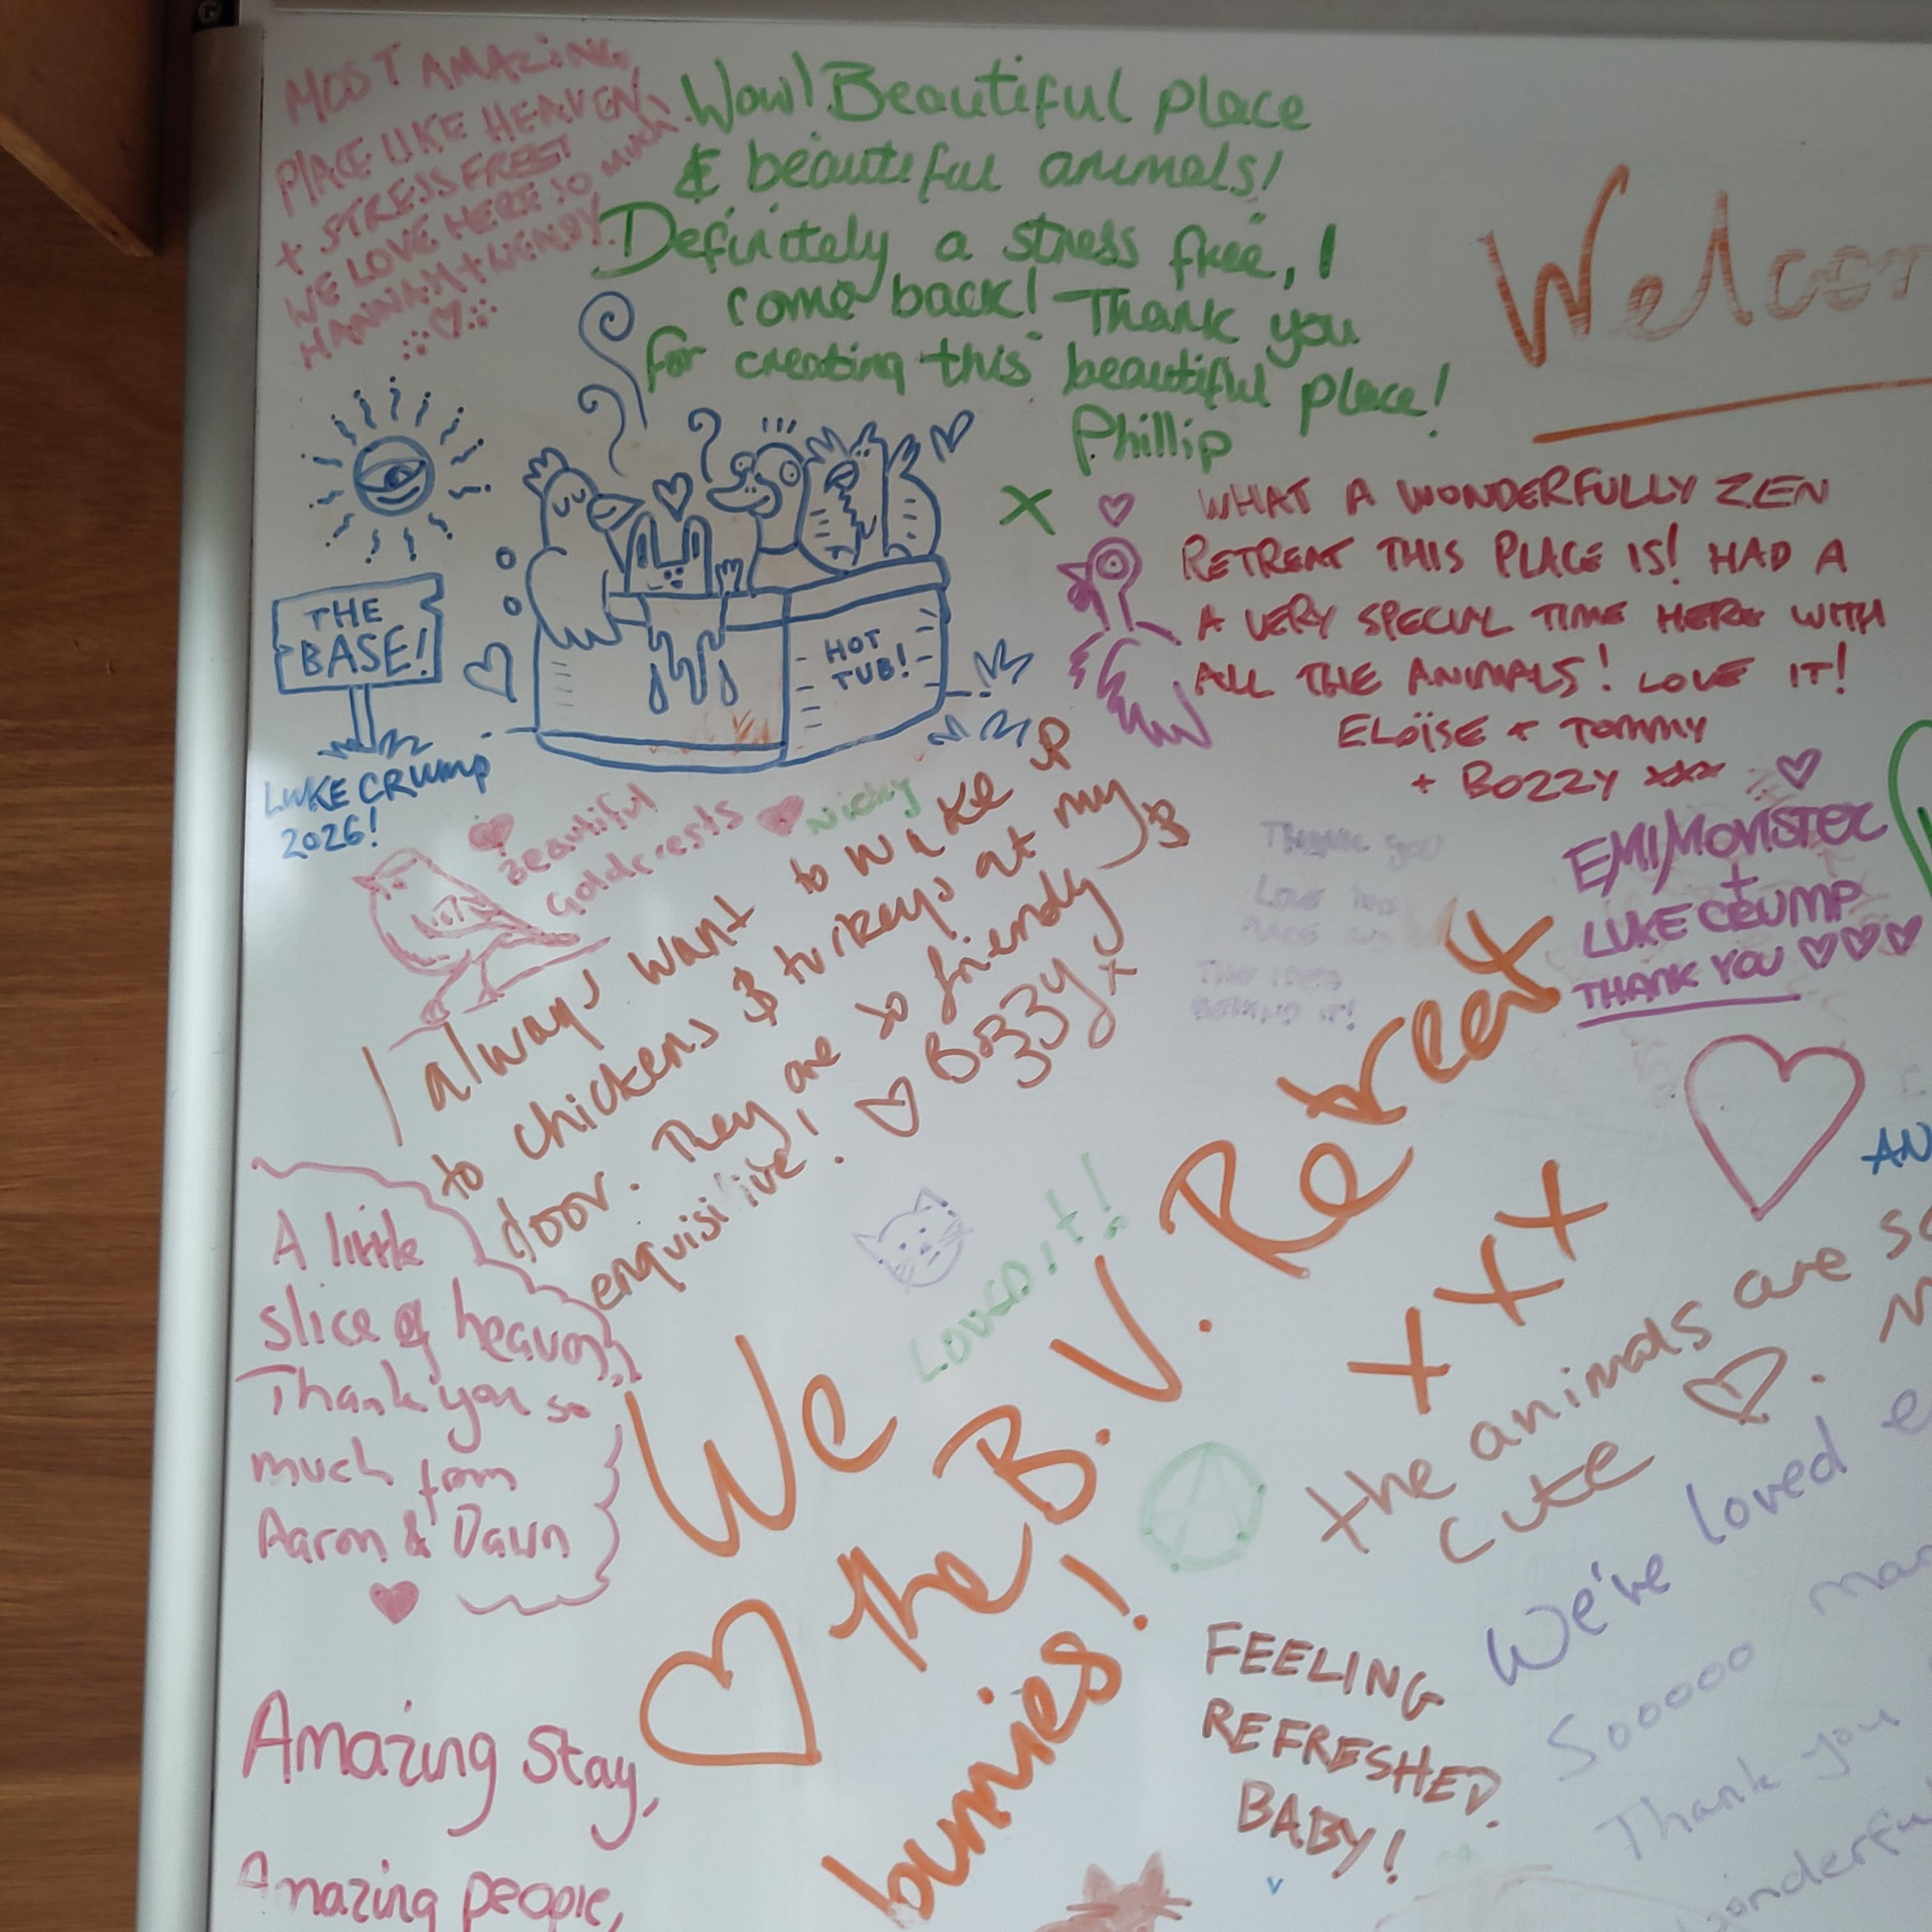 MOST AMAZING,
PLACE LIKE HEAVEN
+ STRESS FREE!
WE LOVE HERE SO MUCH.
HANNAH + WENDY.
Wow! Beautiful place
& beautiful animals!
Definitely a stress free, I
come back! Thank you
for creating this beautiful place!
Phillip
X
Welcom
THE
BASE!
HOT
TUB!
LUKE CRUMP
2026!
WHAT A WONDERFULLY ZEN
RETREAT THIS PLACE IS! HAD A
A VERY SPECIAL TIME HERE WITH
ALL THE ANIMALS! LOVE IT!
ELOÏSE + TOMMY
+ BOZZY xxx
Beautiful
Goldcrests
Nicky
EMIMONSTER
+
LUKE CRUMP
THANK YOU
THANK YOU
LOVE
THE IDEA
BEHIND IT!
I always want to wake up
to chickens & turkeys at my
door. They are so friendly &
enquisitive! Bozzy x
LOVED it!
A little
slice of heaven
Thank you so
much from
Aaron & Dawn
We
♡ the B.V. Retreat
bunnies!
xxx
AN
the animals are so
cute ♡.
We've loved e
Sooooo
Thank you
wonderful
FEELING
REFRESHED.
BABY!
Amazing stay,
Amazing people,